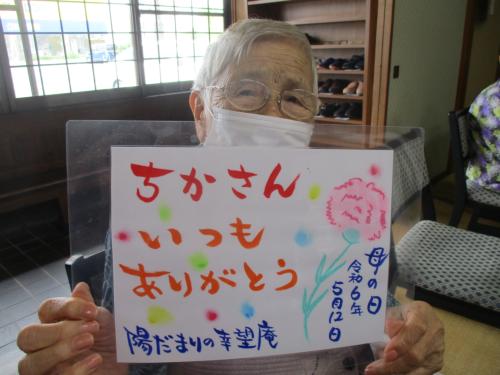 ちかさん
いつも
ありがとう
陽だまりの幸望庵
母の日
令和6年
5月12日